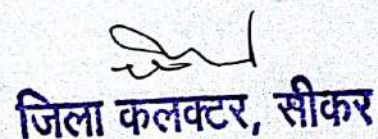 जिला कलक्टर, सीकर